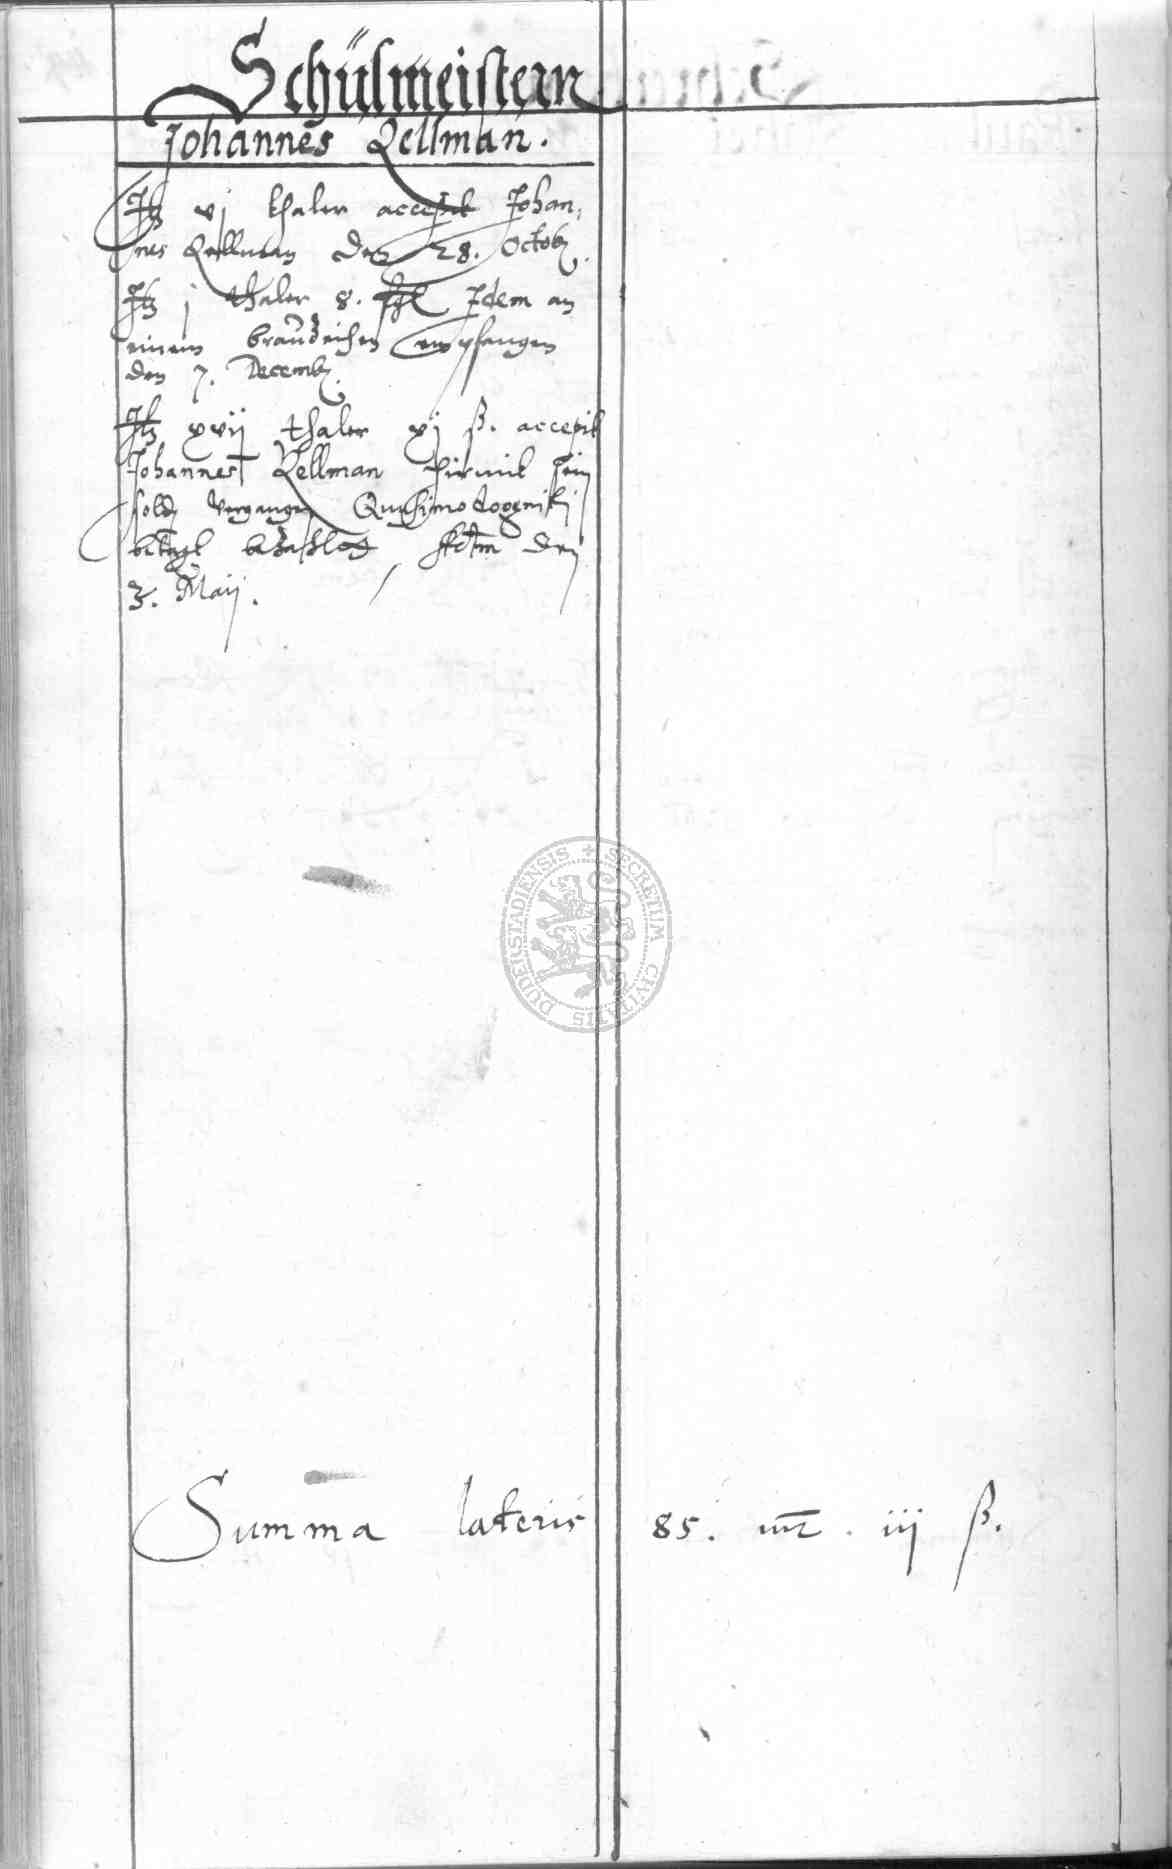 Schülmeistern
Johannes Zellman.
Itz vj thaler accepit Johan,
nes Zellman den 28. Octob.
Itz j thaler 8. ßgl Idem an
einem braudeisen empfangen
den 7. Decemb.
Itz xvij thaler xj ß. accepit
Johannes Zellman hirmit sein
sold vergangen Quasimodogeniti
betagt bezahlet Actm den
3. Maij.
DUDERSTADIENSIS + SECRETUM CIVITATIS
Summa lateris 85. mr. iij ß.